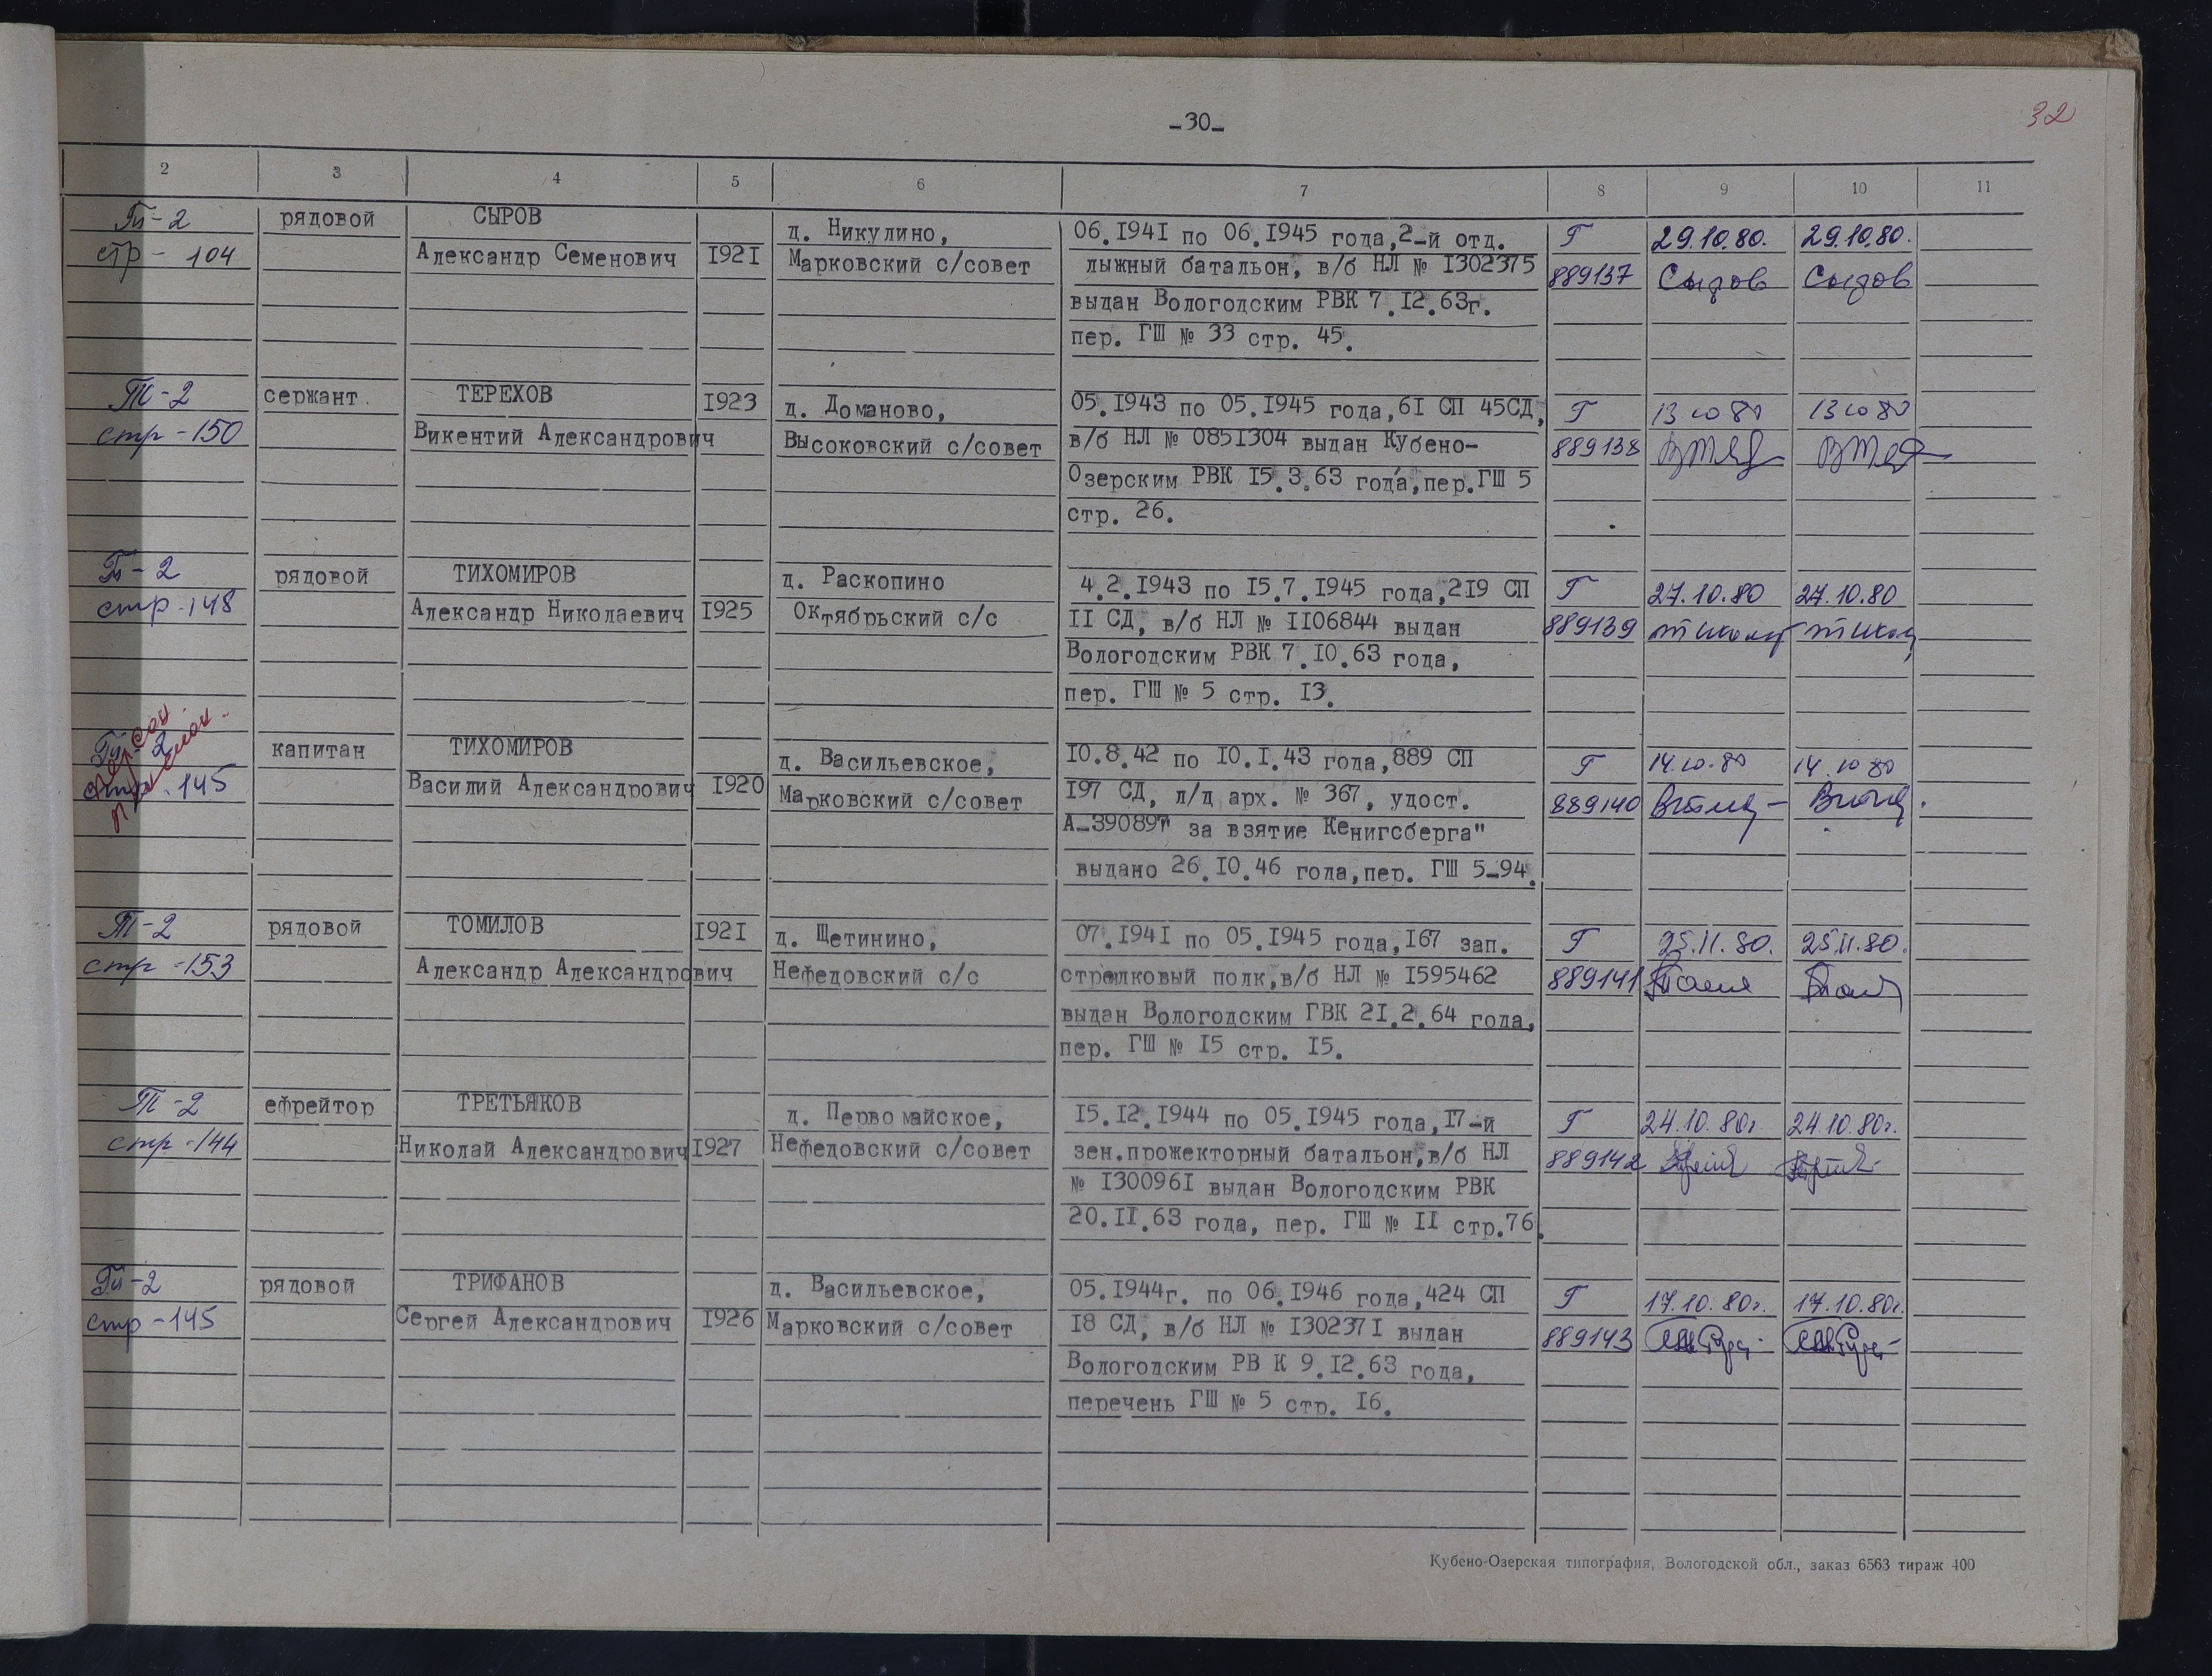 -30-
32
2 3 4 5 6 7 8 9 10 11
Т-2 рядовой СЫРОВ д. Никулино, 06.1941 по 06.1945 года,2-й отд. Г 29.10.80. 29.10.80.
стр - 104 Александр Семенович 1921 Марковский с/совет лыжный батальон, в/б НЛ № 1302375 889137 Сыров Сыров
выдан Вологодским РВК 7.12.63г.
пер. ГШ № 33 стр. 45.
Т-2 сержант ТЕРЕХОВ 1923 д. Доманово, 05.1943 по 05.1945 года,61 СП 45СД, Г 13 10 80 13 10 80
стр - 150 Викентий Александрович Высоковский с/совет в/б НЛ № 0851304 выдан Кубено- 889138
Озерским РВК 15.3.63 года,пер.ГШ 5
стр. 26.
Т-2 рядовой ТИХОМИРОВ д. Раскопино 4.2.1943 по 15.7.1945 года,219 СП Г 27.10.80 27.10.80
стр - 148 Александр Николаевич 1925 Октябрьский с/с 11 СД, в/б НЛ № 1106844 выдан 889139
Вологодским РВК 7.10.63 года,
пер. ГШ № 5 стр. 13.
Т-2 капитан ТИХОМИРОВ д. Васильевское, 10.8.42 по 10.1.43 года,889 СП Г 14.10.80 14.10 80
стр. 145 Василий Александрович 1920 Марковский с/совет 197 СД, л/д арх. № 367, удост. 889140
А-390897 за взятие Кенигсберга"
выдано 26.10.46 года,пер. ГШ 5-94.
Т-2 рядовой ТОМИЛОВ 1921 д. Щетинино, 07.1941 по 05.1945 года,167 зап. Г 25.11.80. 25.11.80.
стр - 153 Александр Александрович Нефедовский с/с стрелковый полк,в/б НЛ № 1595462 889141
выдан Вологодским ГВК 21.2.64 года,
пер. ГШ № 15 стр. 15.
Т-2 ефрейтор ТРЕТЬЯКОВ д. Первомайское, 15.12.1944 по 05.1945 года,17-й Г 24.10.80г. 24.10.80г.
стр - 144 Николай Александрович 1927 Нефедовский с/совет зен.прожекторный батальон,в/б НЛ 889142
№ 1300961 выдан Вологодским РВК
20.11.63 года, пер. ГШ № 11 стр.76.
Т-2 рядовой ТРИФАНОВ д. Васильевское, 05.1944г. по 06.1946 года,424 СП Г 17.10.80г. 17.10.80г.
стр - 145 Сергей Александрович 1926 Марковский с/совет 18 СД, в/б НЛ № 1302371 выдан 889143
Вологодским РВ К 9.12.63 года,
перечень ГШ № 5 стр. 16.
Кубено-Озерская типография, Вологодской обл., заказ 6563 тираж 400